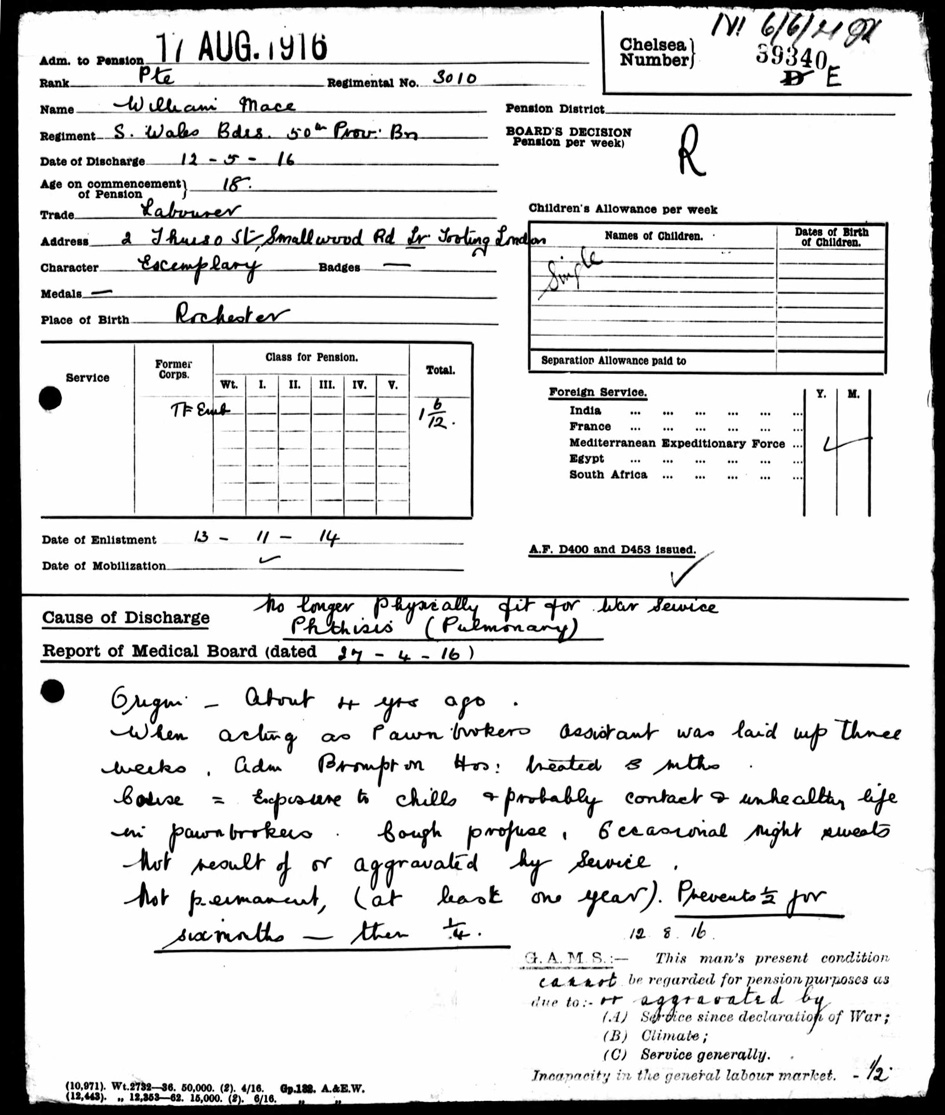 Adm. to Pension 17 AUG. 1916
Rank Pte Regimental No. 3010
Name William Mace
Regiment S. Wales Bdrs. 50th Prov: Bn
Date of Discharge 12 - 5 - 16
Age on commencement of Pension } 18.
Trade Labourer
Address 2 Thurso St, Smallwood Rd Lr Tooting London
Character Excemplary Badges —
Medals —
Place of Birth Rochester
6/6/21
Chelsea Number } 39340
D E
Pension District
BOARD'S DECISION
Pension per week) R
Children's Allowance per week
Names of Children. Dates of Birth of Children.
Single
Separation Allowance paid to
Service Former Corps. Class for Pension. Total.
Wt. I. II. III. IV. V.
TF Emb 1 6/12.
Foreign Service. Y. M.
India ... ... ... ... ...
France ... ... ... ... ...
Mediterranean Expeditionary Force ...
Egypt ... ... ... ... ...
South Africa ... ... ... ... ...
Date of Enlistment 13 - 11 - 14
Date of Mobilization ✓
A.F. D400 and D453 issued.
✓
Cause of Discharge No longer physically fit for War Service
Phthisis (Pulmonary)
Report of Medical Board (dated 27 - 4 - 16)
Origin - About 4 yrs ago.
When acting as Pawnbrokers assistant was laid up three
weeks. Adm Brompton Hos: treated 8 mths.
Cause = Exposure to chills & probably contact & unhealthy life
in pawnbrokers. Cough profuse, Occasional night sweats
Not result of or aggravated by Service.
Not permanent, (at least one year). Prevents ½ for
six months — then ¼.
12 8 16
G.A.M.S.:— This man's present condition
cannot be regarded for pension purposes as
due to:- or aggravated by
(A) Service since declaration of War;
(B) Climate;
(C) Service generally.
Incapacity in the general labour market. - ½
(10,971). Wt.2732—36. 50,000. (2). 4/16. Gp.132. A.&E.W.
(12,443). „ 12,353—62. 15,000. (2). 6/16. „ „